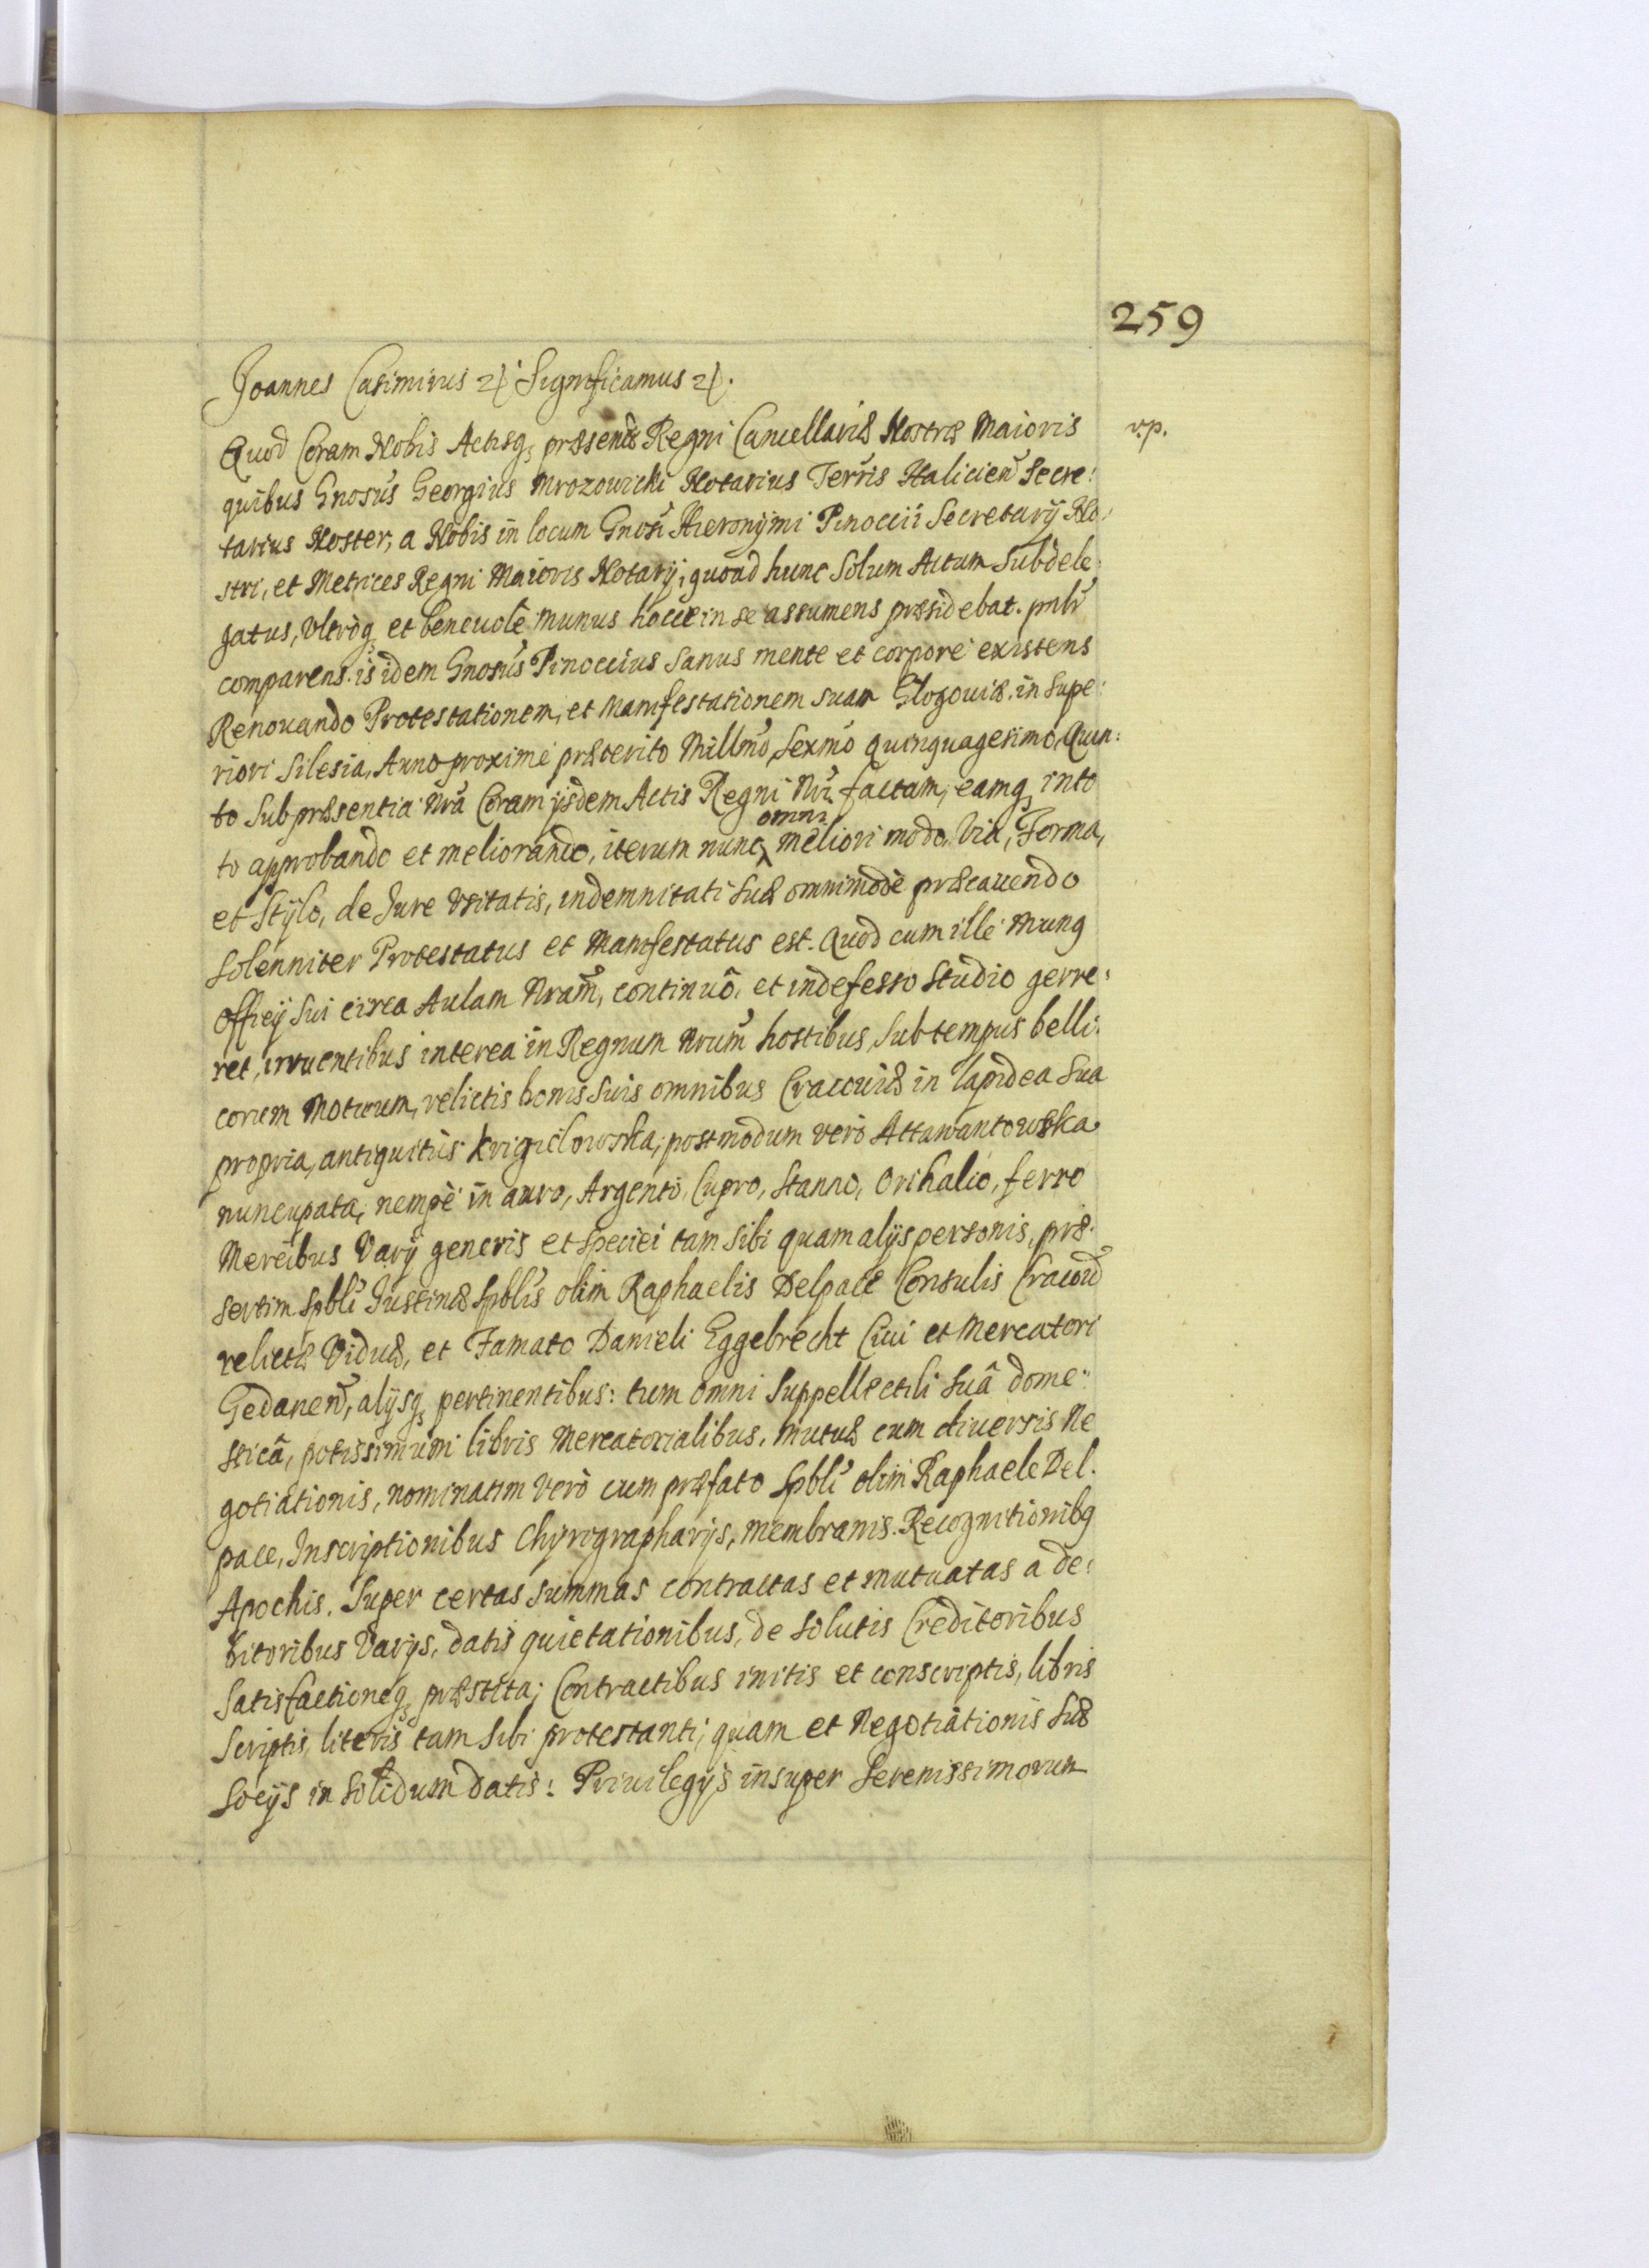 259
Joannes Casimirus etc: Significamus etc.
Quod Coram Nobis Actisq, præsentib Regni Cancellariæ Nostræ Maioris
v.p.
quibus Gnosus Georgius Mrozowicki Notarius Terris Halicien Secre:
tarius Noster, a Nobis in locum Gnosi Hieronymi Pinoccii Secretarij No:
stri, et Metrices Regni Maioris Notarij, quoad hunc Solum Actum Subdele
gatus, Ultroq, et benevolè munus hocce in se assumens præsidebat. pnlr
comparens. is idem Gnosus Pinoccius Sanus mente et corpore existens
Renouando Protestationem, et Manifestationem suam Glogouiæ. in Supe:
riori Silesia, Anno proximè præterito Millmo Sexmo quinquagesimo Quin:
to Sub præsentia Nra Coram ijsdem Actis Regni Nri factam, eamq, into
to approbando et meliorando, iterum nunc omni meliori modo. Via, Forma,
et Stylo, de Jure Usitatis, indemnitati Suæ omnimodè præcauendo
Solenniter Protestatus et Manifestatus est. Quod cum ille Mung
Officij Sui circa Aulam Nram, continuô, et indefesso Studio gerre:
ret, irruentibus interea in Regnum Nrum hostibus, Sub tempus belli:
corum Motuum, relictis bonis Suis omnibus Cracouiæ in lapidea Sua
propria, antiquitùs Krigielowska, postmodum verò Attawantowska
nuncupata, nempè in auro, Argento, Cupro, Stanno, Orihalco, ferro
Mercibus Varij generis et Speciei tam Sibi quam alijs personis, præ:
sertim Spbli Justinæ Spblis olim Raphaelis Delpace Consulis Cracoud
relictæ Viduæ, et Famato Danieli Eggebrecht Ciui et Mercatori
Gedanen, alijsq, pertinentibus: tum omni Suppellectili Suâ dome:
sticâ, potissimum libris Mercatorialibus, mutuæ cum diuersis Ne
gotiationis, nominatim verò cum præfato Spbli olim Raphaele Del.
pace, Inscriptionibus Chyrographarijs, membranis. Recognitionibg
Apochis. Super certas summas contractas et mutuatas a de:
bitoribus Varijs, datis quietationibus, de Solutis Creditoribus
Satisfactioneq, præstita; Contractibus initis et conscriptis, libris
Scriptis, literis tam Sibi protestanti, quam et Negotiationis Suæ
Socijs in Solidum datis: Priuilegijs insuper Serenissimorum